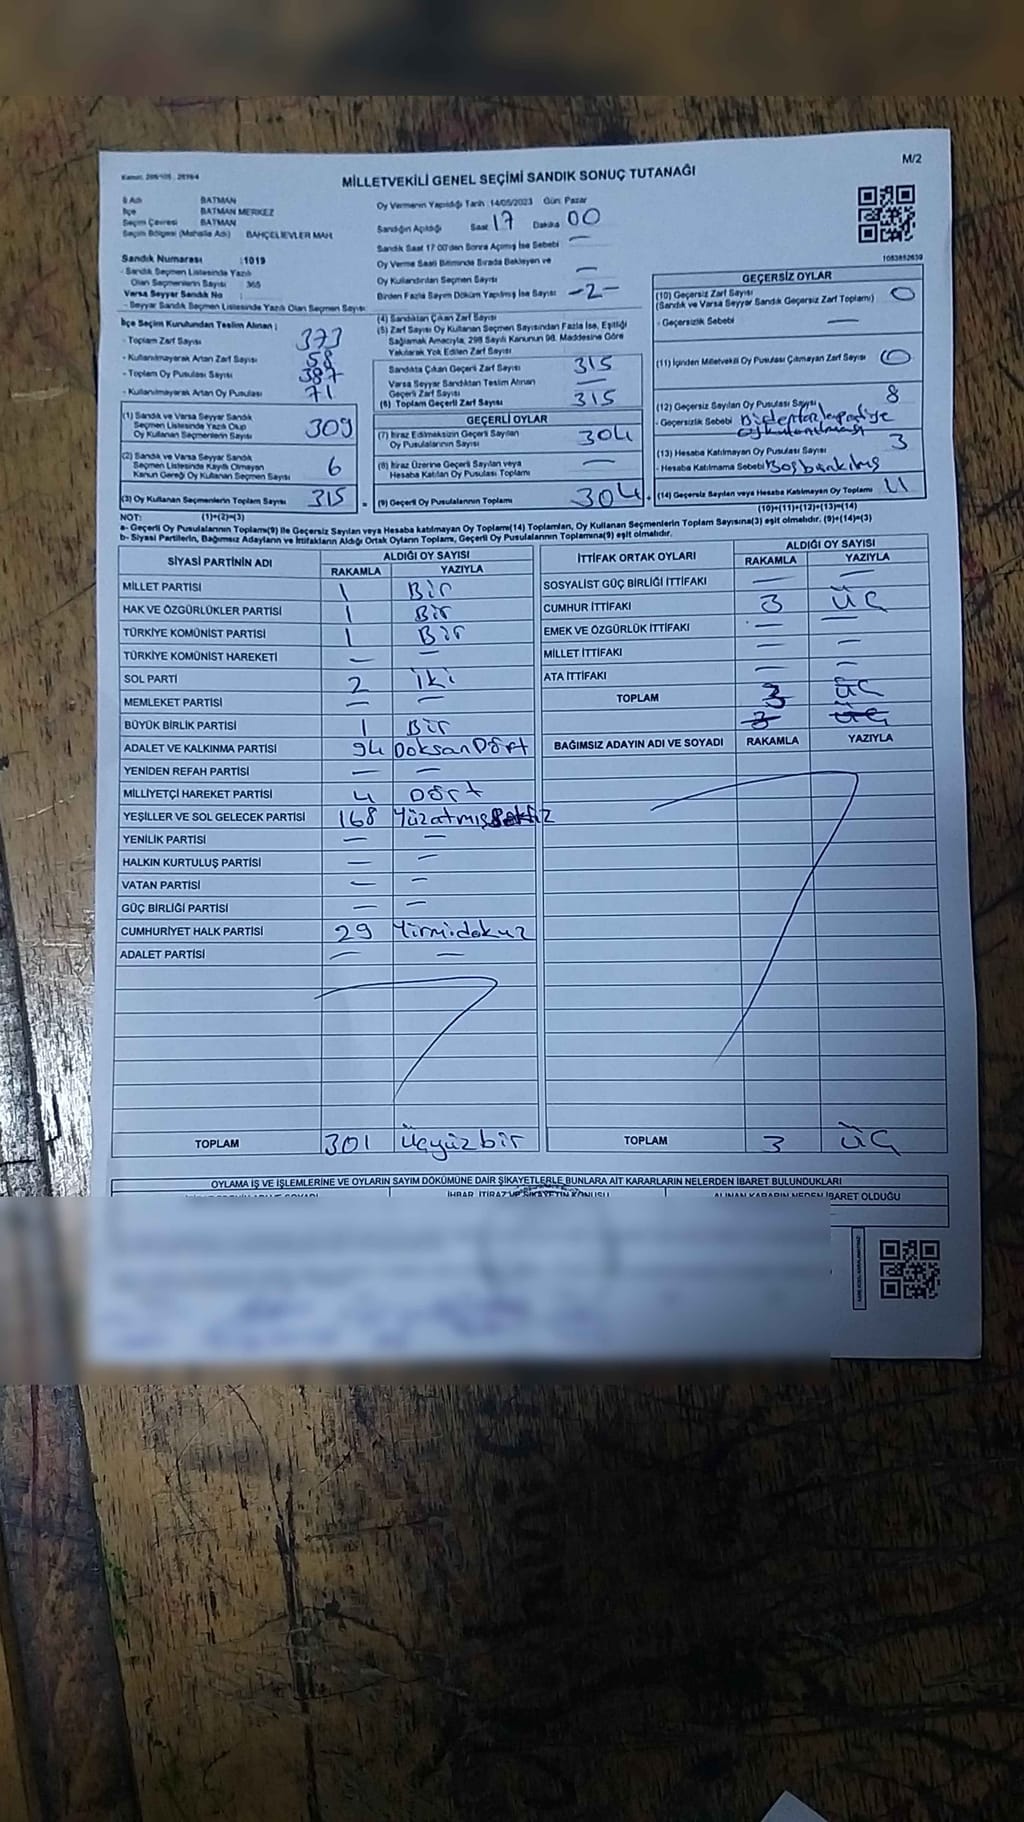 M/2
MİLLETVEKİLİ GENEL SEÇİMİ SANDIK SONUÇ TUTANAĞI
İl Adı BATMAN
İlçe BATMAN MERKEZ
Seçim Çevresi BATMAN
Seçim Bölgesi (Mahalle Adı) BAHÇELİEVLER MAH.
Oy Vermenin Yapıldığı Tarih :14/05/2023 Gün: Pazar
Sandığın Açıldığı Saat 17 Dakika 00
Sandık Saat 17:00'den Sonra Açılmış İse Sebebi —
Oy Verme Saati Bitiminde Sırada Bekleyen ve
Oy Kullandırılan Seçmen Sayısı —
Birden Fazla Sayım Döküm Yapılmış İse Sayısı -2-
Sandık Numarası :1019
- Sandık Seçmen Listesinde Yazılı
Olan Seçmenlerin Sayısı 365
Varsa Seyyar Sandık No :
- Seyyar Sandık Seçmen Listesinde Yazılı Olan Seçmen Sayısı
İlçe Seçim Kurulundan Teslim Alınan ;
- Toplam Zarf Sayısı 373
- Kullanılmayarak Artan Zarf Sayısı 58
- Toplam Oy Pusulası Sayısı 387
- Kullanılmayarak Artan Oy Pusulası 71
(1) Sandık ve Varsa Seyyar Sandık
Seçmen Listesinde Yazılı Olup
Oy Kullanan Seçmenlerin Sayısı 309
(2) Sandık ve Varsa Seyyar Sandık
Seçmen Listesinde Kayıtlı Olmayan
Kanun Gereği Oy Kullanan Seçmen Sayısı 6
(3) Oy Kullanan Seçmenlerin Toplam Sayısı 315
(4) Sandıktan Çıkan Zarf Sayısı
(5) Zarf Sayısı Oy Kullanan Seçmen Sayısından Fazla İse, Eşitliği
Sağlamak Amacıyla, 298 Sayılı Kanunun 98. Maddesine Göre
Yakılarak Yok Edilen Zarf Sayısı
Sandıkta Çıkan Geçerli Zarf Sayısı 315
Varsa Seyyar Sandıktan Teslim Alınan
Geçerli Zarf Sayısı —
(6) Toplam Geçerli Zarf Sayısı 315
GEÇERLİ OYLAR
(7) İtiraz Edilmeksizin Geçerli Sayılan
Oy Pusulalarının Sayısı 304
(8) İtiraz Üzerine Geçerli Sayılan veya
Hesaba Katılan Oy Pusulası Toplamı —
= (9) Geçerli Oy Pusulalarının Toplamı 304 +
1083852639
GEÇERSİZ OYLAR
(10) Geçersiz Zarf Sayısı
(Sandık ve Varsa Seyyar Sandık Geçersiz Zarf Toplamı) 0
- Geçersizlik Sebebi —
(11) İçinden Milletvekili Oy Pusulası Çıkmayan Zarf Sayısı 0
(12) Geçersiz Sayılan Oy Pusulası Sayısı 8
- Geçersizlik Sebebi
(13) Hesaba Katılmayan Oy Pusulası Sayısı 3
- Hesaba Katılmama Sebebi
(14) Geçersiz Sayılan veya Hesaba Katılmayan Oy Toplamı 11
(10)+(11)+(12)+(13)=(14)
NOT: (1)+(2)=(3)
a- Geçerli Oy Pusulalarının Toplamı(9) ile Geçersiz Sayılan veya Hesaba katılmayan Oy Toplamı(14) Toplamları, Oy Kullanan Seçmenlerin Toplam Sayısına(3) eşit olmalıdır. (9)+(14)=(3)
b- Siyasi Partilerin, Bağımsız Adayların ve İttifakların Aldığı Ortak Oyların Toplamı, Geçerli Oy Pusulalarının Toplamına(9) eşit olmalıdır.
SİYASİ PARTİNİN ADI ALDIĞI OY SAYISI
RAKAMLA YAZIYLA
MİLLET PARTİSİ 1 Bir
HAK VE ÖZGÜRLÜKLER PARTİSİ 1 Bir
TÜRKİYE KOMÜNİST PARTİSİ 1 Bir
TÜRKİYE KOMÜNİST HAREKETİ — —
SOL PARTİ 2 iki
MEMLEKET PARTİSİ — —
BÜYÜK BİRLİK PARTİSİ 1 Bir
ADALET VE KALKINMA PARTİSİ 94 DoksanDört
YENİDEN REFAH PARTİSİ — —
MİLLİYETÇİ HAREKET PARTİSİ 4 Dört
YEŞİLLER VE SOL GELECEK PARTİSİ 168 Yüzatmışsekiz
YENİLİK PARTİSİ — —
HALKIN KURTULUŞ PARTİSİ — —
VATAN PARTİSİ — —
GÜÇ BİRLİĞİ PARTİSİ — —
CUMHURİYET HALK PARTİSİ 29 Yirmidokuz
ADALET PARTİSİ — —
TOPLAM 301 Üçyüzbir
İTTİFAK ORTAK OYLARI ALDIĞI OY SAYISI
RAKAMLA YAZIYLA
SOSYALİST GÜÇ BİRLİĞİ İTTİFAKI — —
CUMHUR İTTİFAKI 3 ÜÇ
EMEK VE ÖZGÜRLÜK İTTİFAKI — —
MİLLET İTTİFAKI — —
ATA İTTİFAKI — —
TOPLAM 3 ÜÇ
3 ÜÇ
BAĞIMSIZ ADAYIN ADI VE SOYADI RAKAMLA YAZIYLA
TOPLAM 3 ÜÇ
OYLAMA İŞ VE İŞLEMLERİNE VE OYLARIN SAYIM DÖKÜMÜNE DAİR ŞİKAYETLERLE BUNLARA AİT KARARLARIN NELERDEN İBARET BULUNDUKLARI
İHBAR, İTİRAZ VE ŞİKAYETİN KONUSU ALINAN KARARIN NEDEN İBARET OLDUĞU